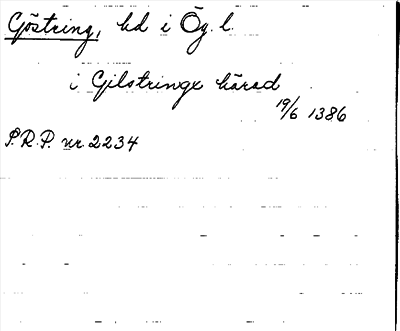 Göstring, hd i Ög. l.
i Gilstringe härad
19/6 1386
S.R.P. nr. 2234